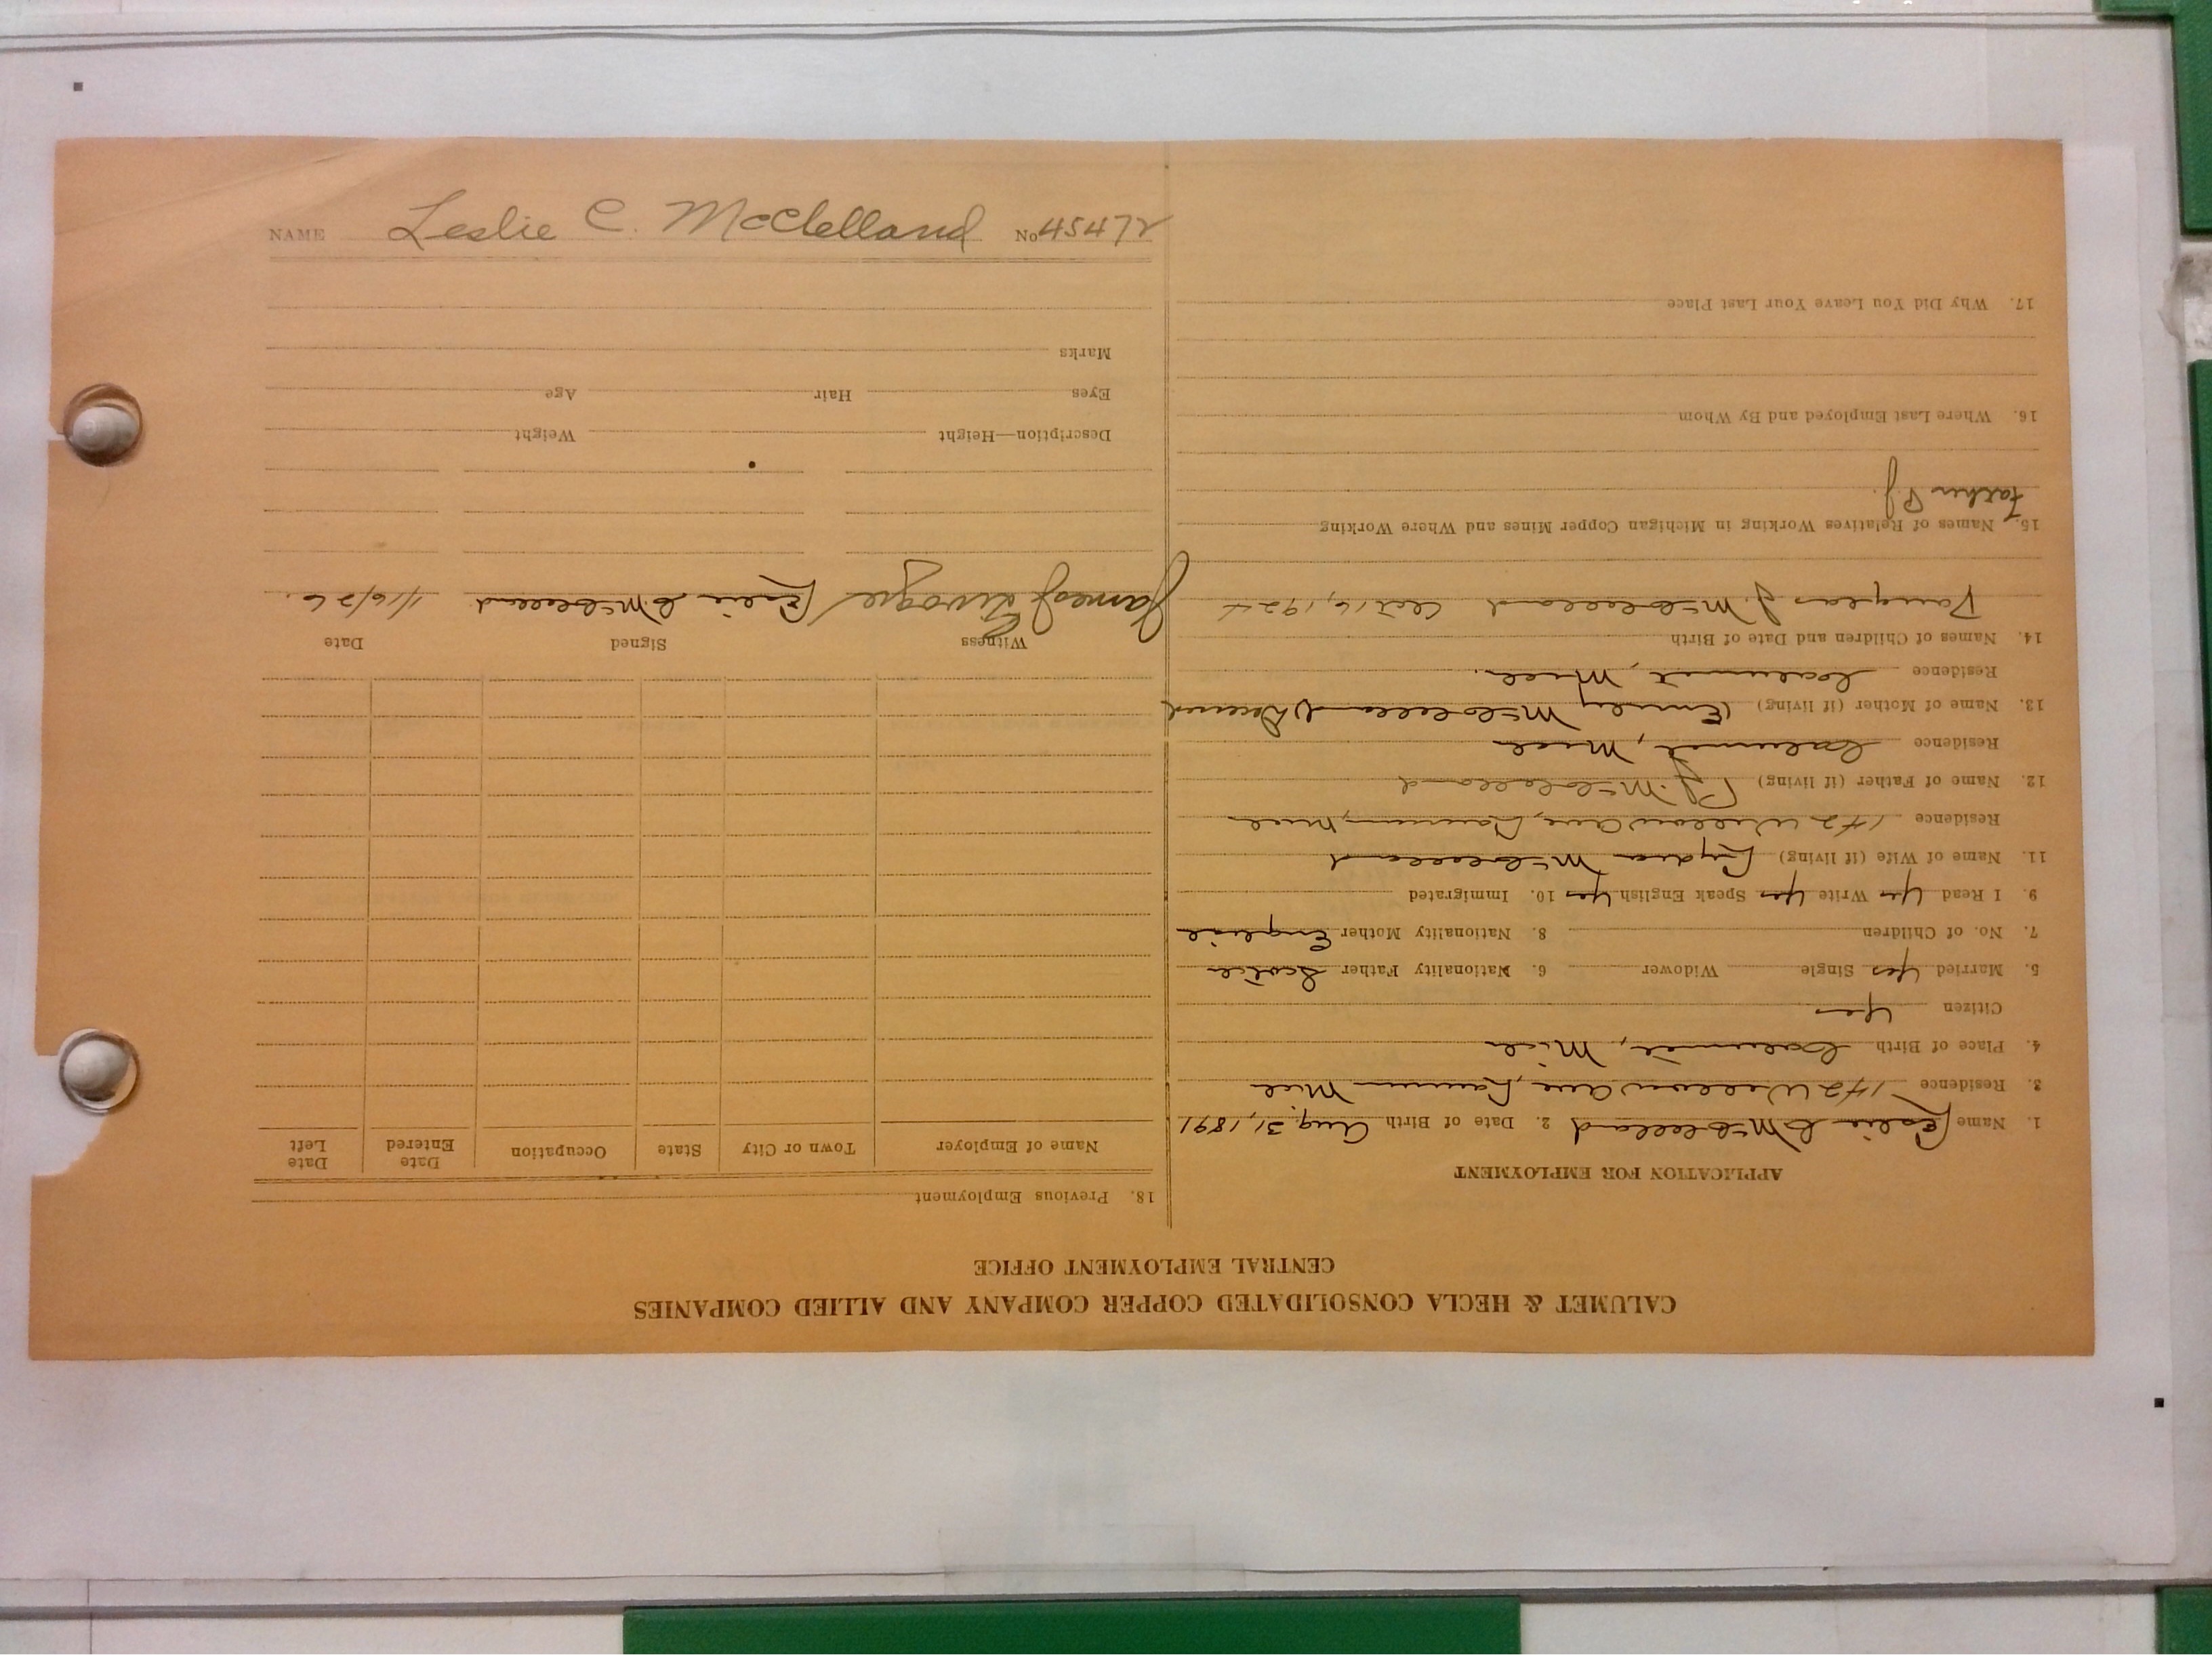 NAME Leslie C. McClelland No 45472
CALUMET & HECLA CONSOLIDATED COPPER COMPANY AND ALLIED COMPANIES
CENTRAL EMPLOYMENT OFFICE
APPLICATION FOR EMPLOYMENT
1. Name Leslie C McClelland 2. Date of Birth Aug. 31, 1891
3. Residence 142 Willow Ave, Laurium Mich
4. Place of Birth Calumet, Mich
Citizen Yes
5. Married Yes Single Widower 6. Nationality Father Scotch
7. No. of Children 8. Nationality Mother English
9. I Read Yes Write Yes Speak English Yes 10. Immigrated
11. Name of Wife (if living) Lydia McClelland
Residence 142 Willow Ave, Laurium, Mich
12. Name of Father (if living) P.J. McClelland
Residence Calumet, Mich
13. Name of Mother (if living) (Emily McClelland) Deceased
Residence Calumet, Mich.
14. Names of Children and Date of Birth
J. McClelland Oct 16, 1924
15. Names of Relatives Working in Michigan Copper Mines and Where Working
Father P.J.
16. Where Last Employed and By Whom
17. Why Did You Leave Your Last Place
18. Previous Employment
Name of Employer Town or City State Occupation Date Entered Date Left
Witness Signed Date
James Leslie C McClelland 1/6/26.
Description—Height Weight
Eyes Hair Age
Marks